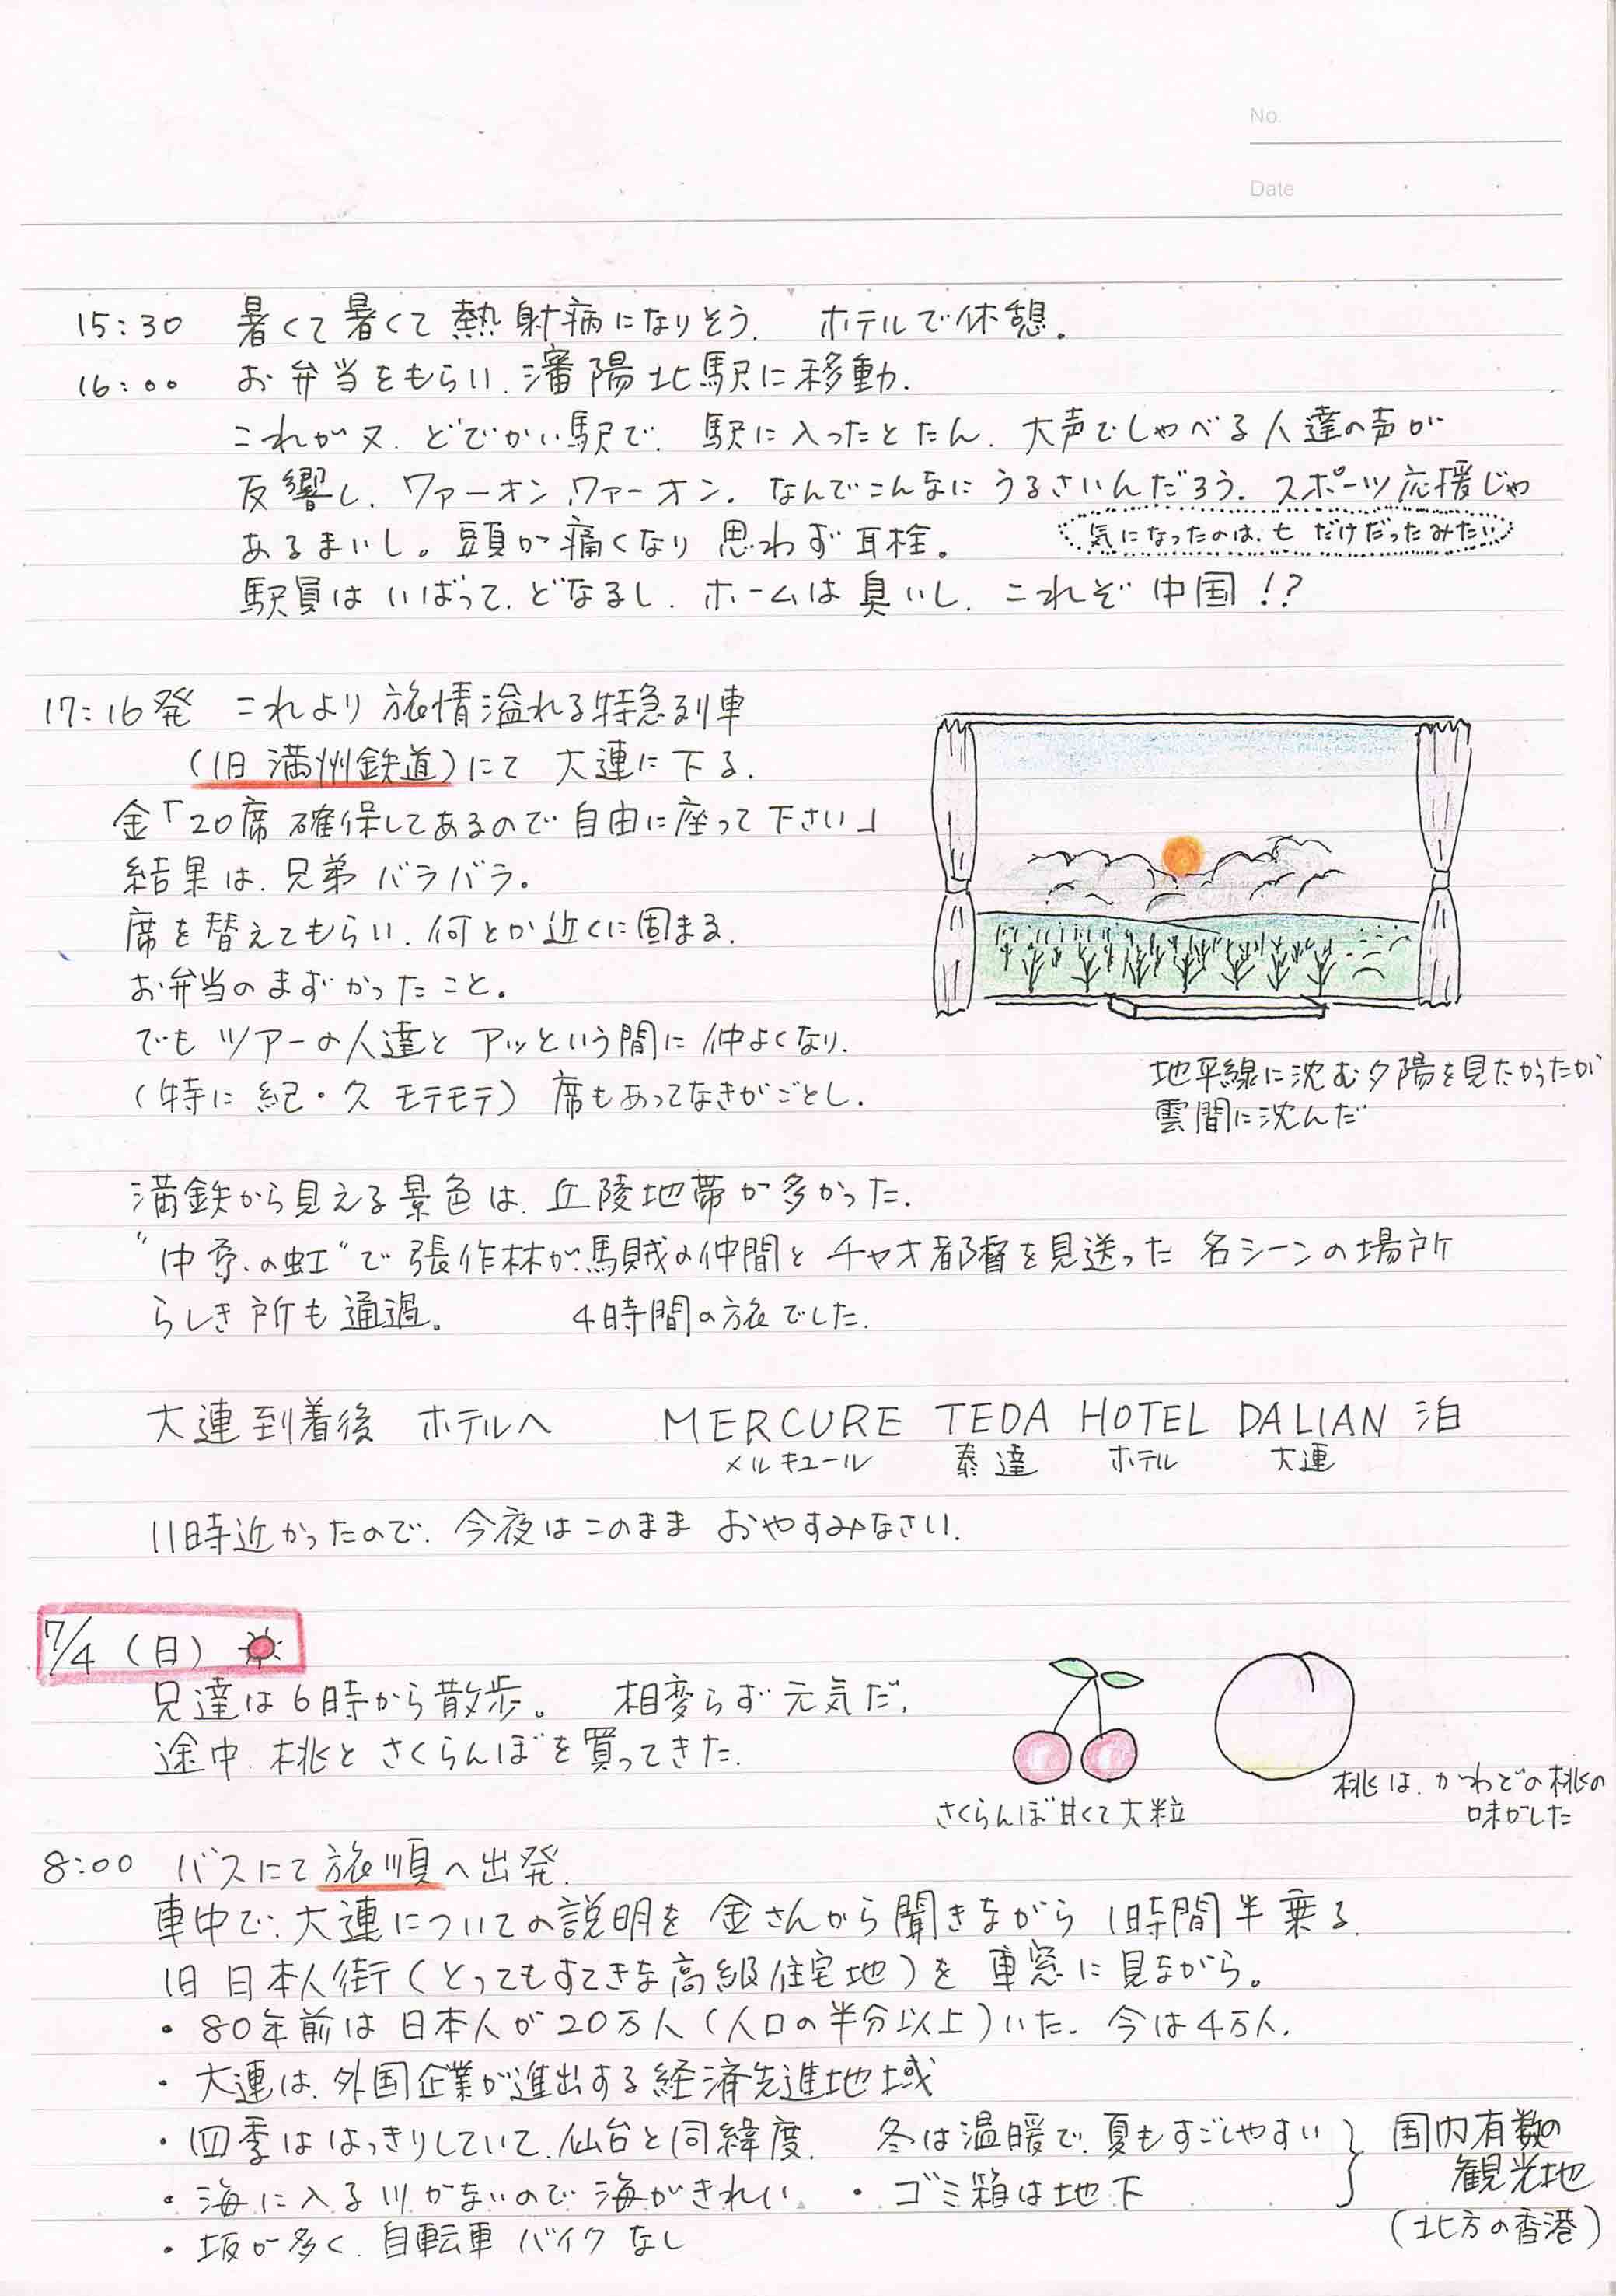 No.
Date
15:30 暑くて暑くて熱射病になりそう. ホテルで休憩.
16:00 お弁当をもらい、瀋陽北駅に移動.
これが又、どでかい駅で、駅に入ったとたん、大声でしゃべる人達の声が
反響し、ワァーオン、ワァーオン. なんでこんなにうるさいんだろう. スポーツ応援じゃ
あるまいし。頭が痛くなり思わず耳栓。
気になったのは、七だけだったみたい
駅員はいばって、どなるし、ホームは臭いし、これぞ中国!?
17:16発 これより旅情溢れる特急列車
(旧満州鉄道)にて 大連に下る.
金「20席確保してあるので自由に座って下さい」
結果は、兄弟バラバラ。
席を替えてもらい、何とか近くに固まる.
お弁当のまずかったこと。
でもツアーの人達とアッという間に仲よくなり、
(特に紀・久モテモテ) 席もあってなきがごとし.
地平線に沈む夕陽を見たかったが
雲間に沈んだ
満鉄から見える景色は、丘陵地帯が多かった.
"中原の虹"で張作林が馬賊の仲間とチャオ都督を見送った名シーンの場所
らしき所も通過。 4時間の旅でした.
大連到着後 ホテルへ MERCURE TEDA HOTEL DALIAN 泊
メルキュール 泰達 ホテル 大連
11時近かったので、今夜はこのまま おやすみなさい.
7/4 (日)
兄達は6時から散歩。 相変らず元気だ.
途中、桃とさくらんぼを買ってきた.
さくらんぼ甘くて大粒
桃は、かわどの桃の
味がした
8:00 バスにて旅順へ出発.
車中で、大連についての説明を金さんから聞きながら1時間半乗る.
旧日本人街(とってもすてきな高級住宅地)を車窓に見ながら。
・80年前は日本人が20万人(人口の半分以上)いた. 今は4万人.
・大連は、外国企業が進出する経済先進地域
・四季ははっきりしていて、仙台と同緯度. 冬は温暖で、夏もすごしやすい
・海に入る川がないので海がきれい ・ゴミ箱は地下
・坂が多く、自転車バイクなし
国内有数の
観光地
(北方の香港)